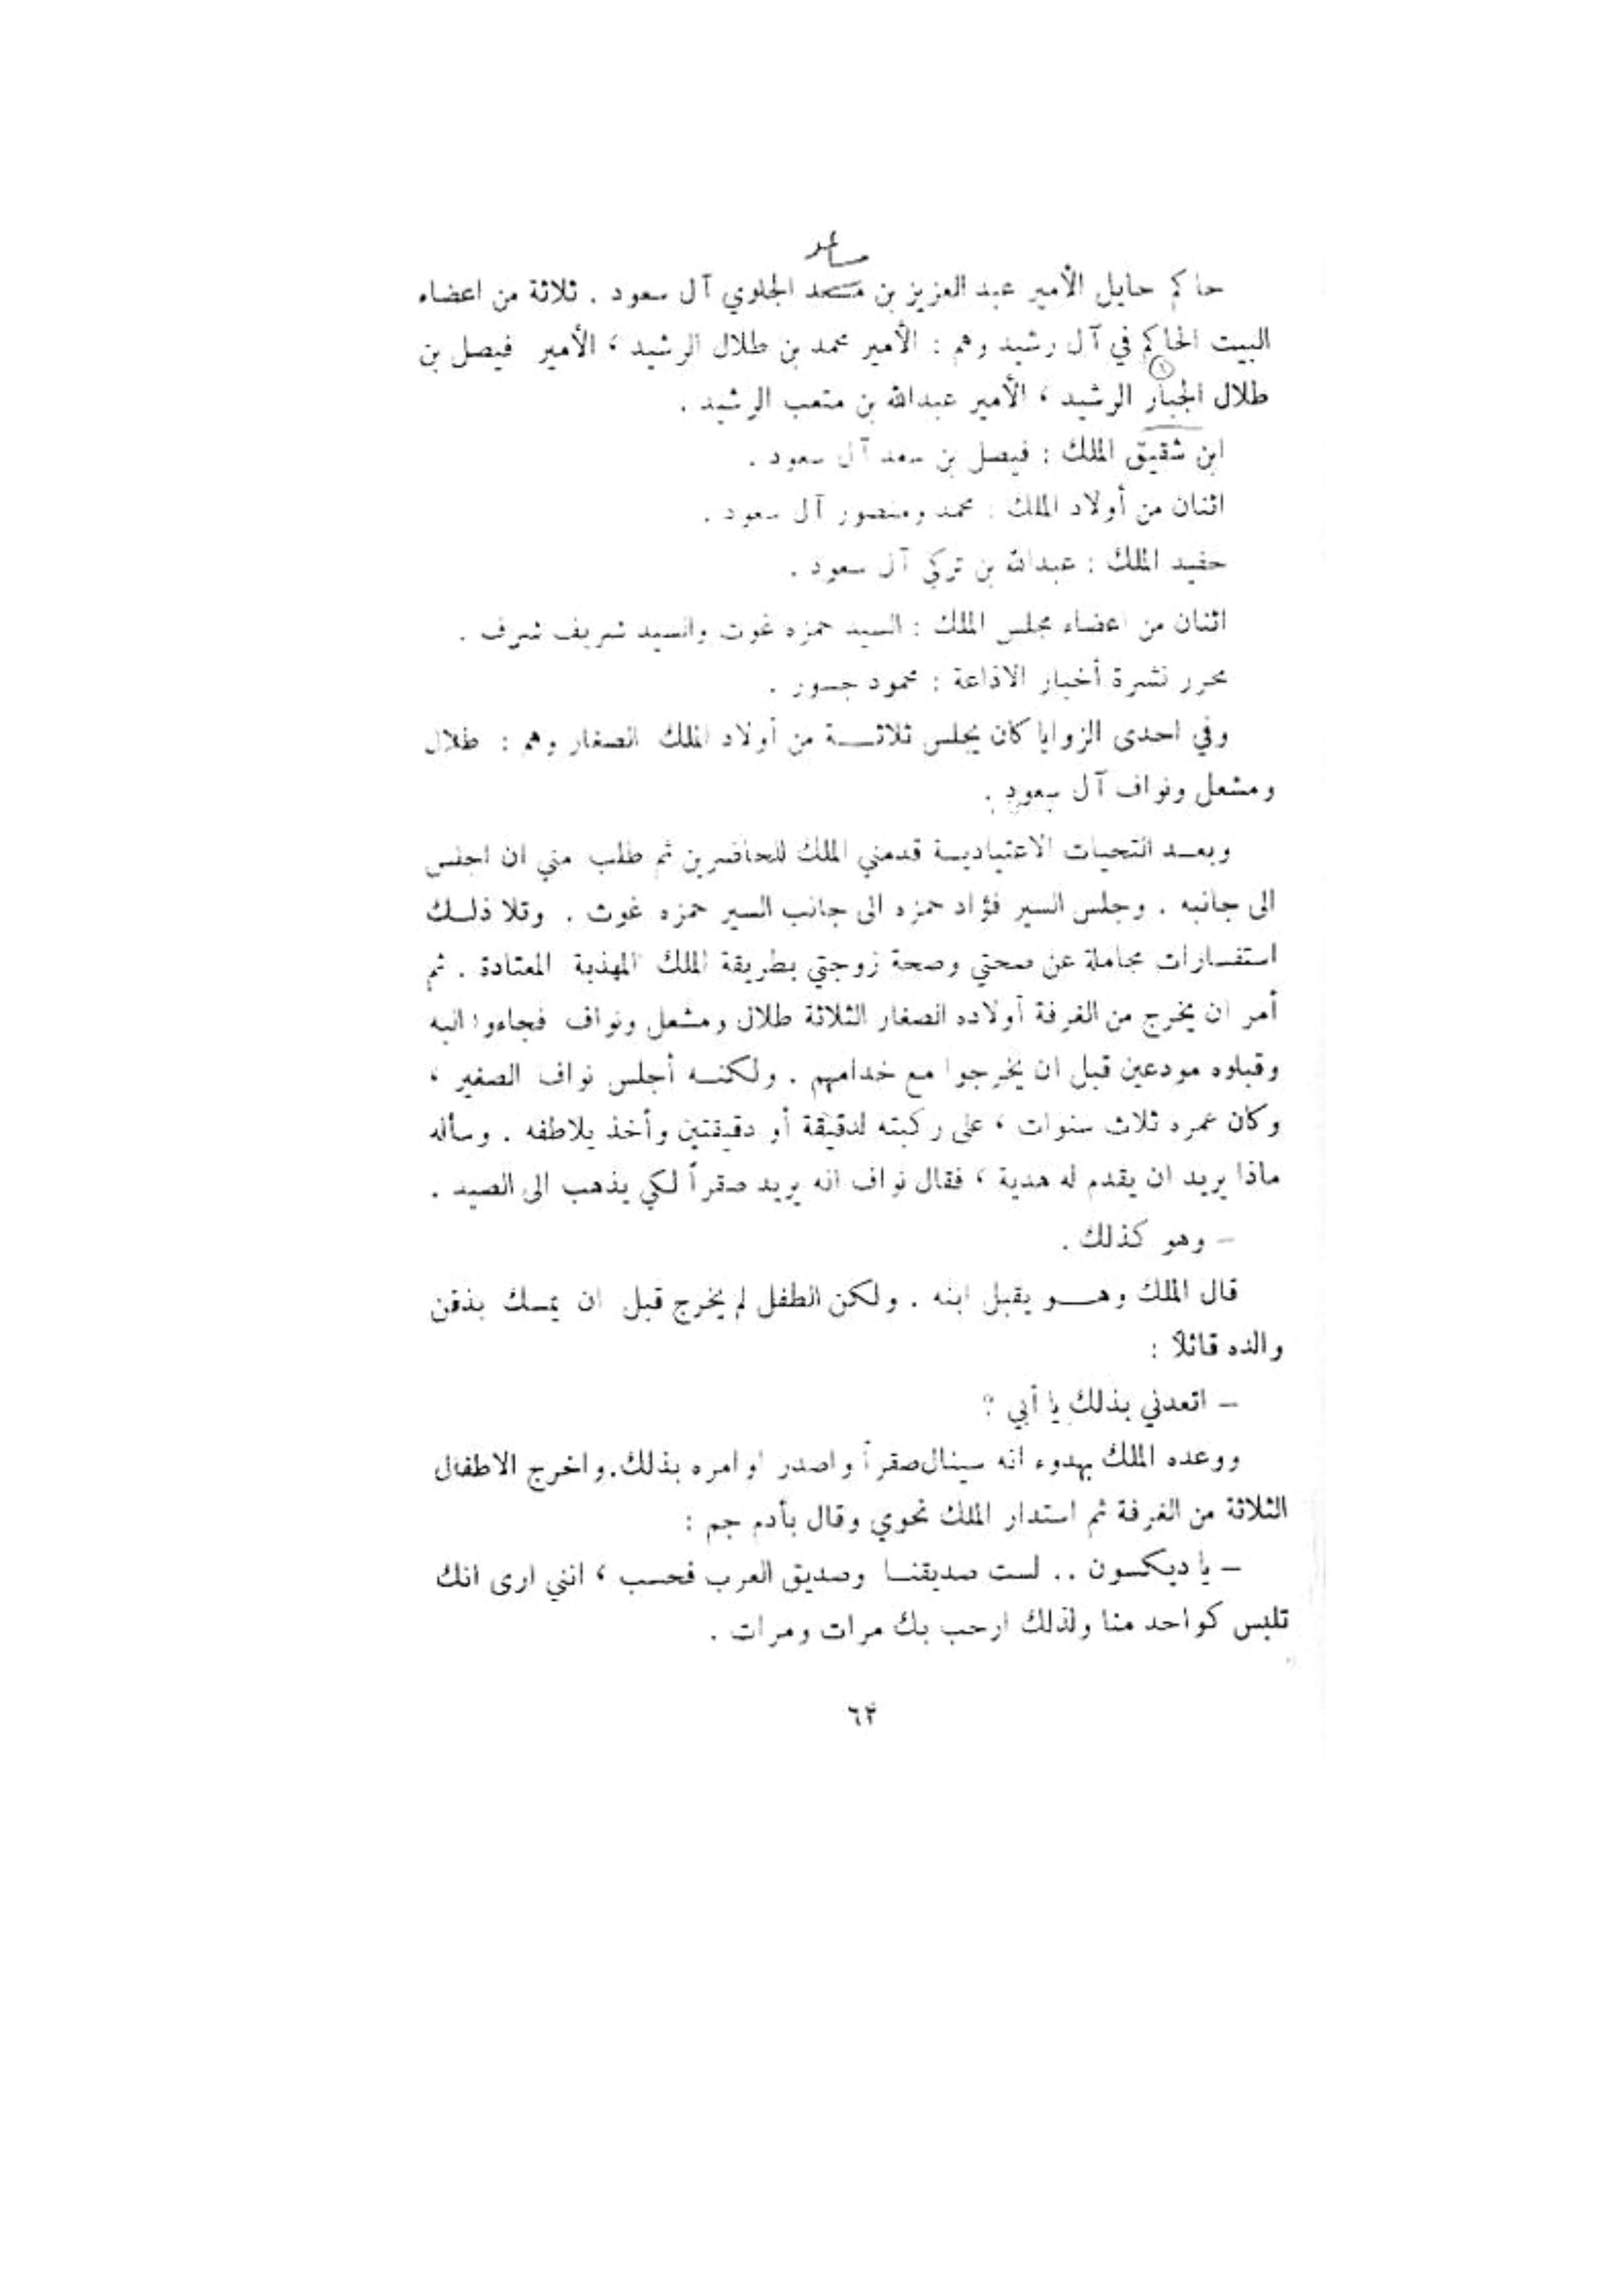 مساعد
حاكم حايل الأمير عبد العزيز بن مسعد الجلوي آل سعود . ثلاثة من اعضاء
البيت الحاكم في آل رشيد وهم : الأمير محمد بن طلال الرشيد ، الأمير فيصل بن
طلال الجبار (١) الرشيد ، الأمير عبدالله بن متعب الرشيد .
ابن شقيق الملك : فيصل بن سعد آل سعود .
اثنان من أولاد الملك : محمد ومنصور آل سعود .
حفيد الملك : عبدالله بن تركي آل سعود .
اثنان من اعضاء مجلس الملك : السيد حمزه غوث والسيد شريف شرف .
محرر نشرة أخبار الاذاعة : محمود جسور .
وفي احدى الزوايا كان يجلس ثلاثـــة من أولاد الملك الصغار وهم : طلال
ومشعل ونواف آل سعود .
وبعــد التحيات الاعتياديــة قدمني الملك للحاضرين ثم طلب مني ان اجلس
الى جانبه . وجلس السير فؤاد حمزه الى جانب السير حمزه غوث . وتلا ذلــك
استفسارات مجاملة عن صحتي وصحة زوجتي بطريقة الملك المهذبة المعتادة . ثم
أمر ان يخرج من الغرفة أولاده الصغار الثلاثة طلال ومشعل ونواف فجاءوا اليه
وقبلوه مودعين قبل ان يخرجوا مع خدامهم . ولكنــه أجلس نواف الصغير ،
وكان عمره ثلاث سنوات ، على ركبته لدقيقة أو دقيقتين وأخذ يلاطفه . وسأله
ماذا يريد ان يقدم له هدية ، فقال نواف انه يريد صقراً لكي يذهب الى الصيد .
– وهو كذلك .
قال الملك وهـــو يقبل ابنه . ولكن الطفل لم يخرج قبل ان يمسك بذقن
والده قائلاً :
– اتعدني بذلك يا أبي ؟
ووعده الملك بهدوء انه سينال صقراً واصدر اوامره بذلك. واخرج الاطفال
الثلاثة من الغرفة ثم استدار الملك نحوي وقال بأدم جم :
– يا ديكسون .. لست صديقنــا وصديق العرب فحسب ، انني ارى انك
تلبس كواحد منا ولذلك ارحب بك مرات ومرات .
٦٢